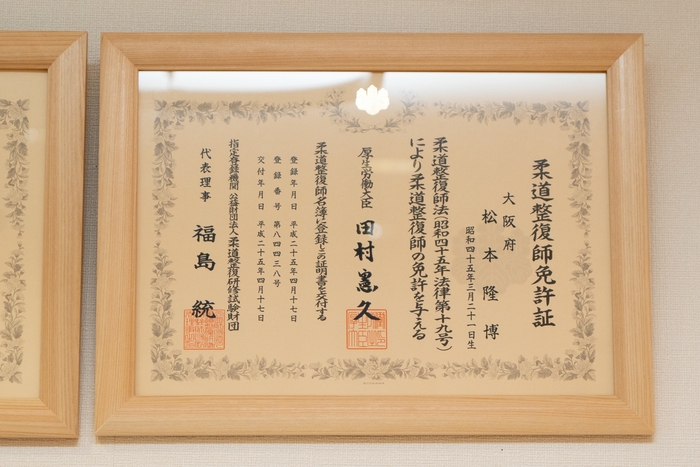 柔道整復師免許証
大阪府
松本隆博
昭和四十五年三月二十一日生
柔道整復師法(昭和四十五年法律第十九号)
により柔道整復師の免許を与える
厚生労働大臣 田村憲久
柔道整復師名簿に登録しこの証明書を交付する
登録年月日 平成二十五年四月十七日
登録番号 第八四四三八号
交付年月日 平成二十五年四月十七日
指定登録機関 公益財団法人柔道整復研修試験財団
代表理事 福島統